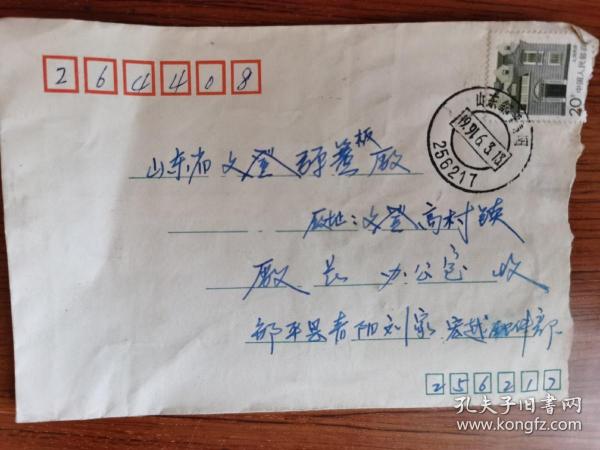 264408
20分
中国人民邮政
山东
1991.6.3.13
256217
山东省文登 板厂
厂地:文登高村镇
厂长办公室收
邹平县青阳刘家宏越配件部
256217
孔夫子旧书网
www.kongfz.com